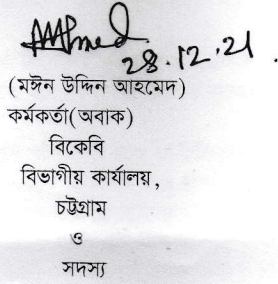 AAAhmed
28.12.21
(মঈন উদ্দিন আহমেদ)
কর্মকর্তা(অবাক)
বিকেবি
বিভাগীয় কার্যালয়,
চট্টগ্রাম
ও
সদস্য